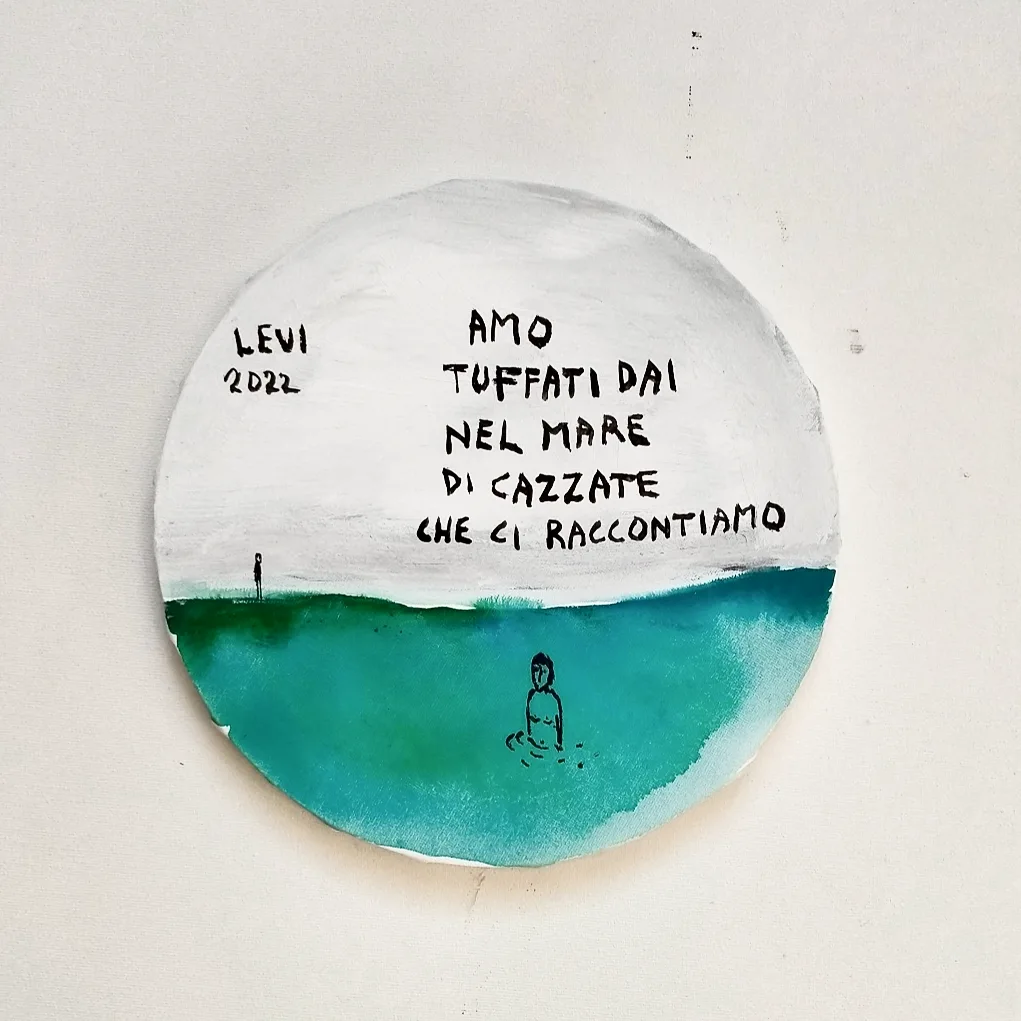 LEVI
2022
AMO
TUFFATI DAI
NEL MARE
DI CAZZATE
CHE CI RACCONTIAMO